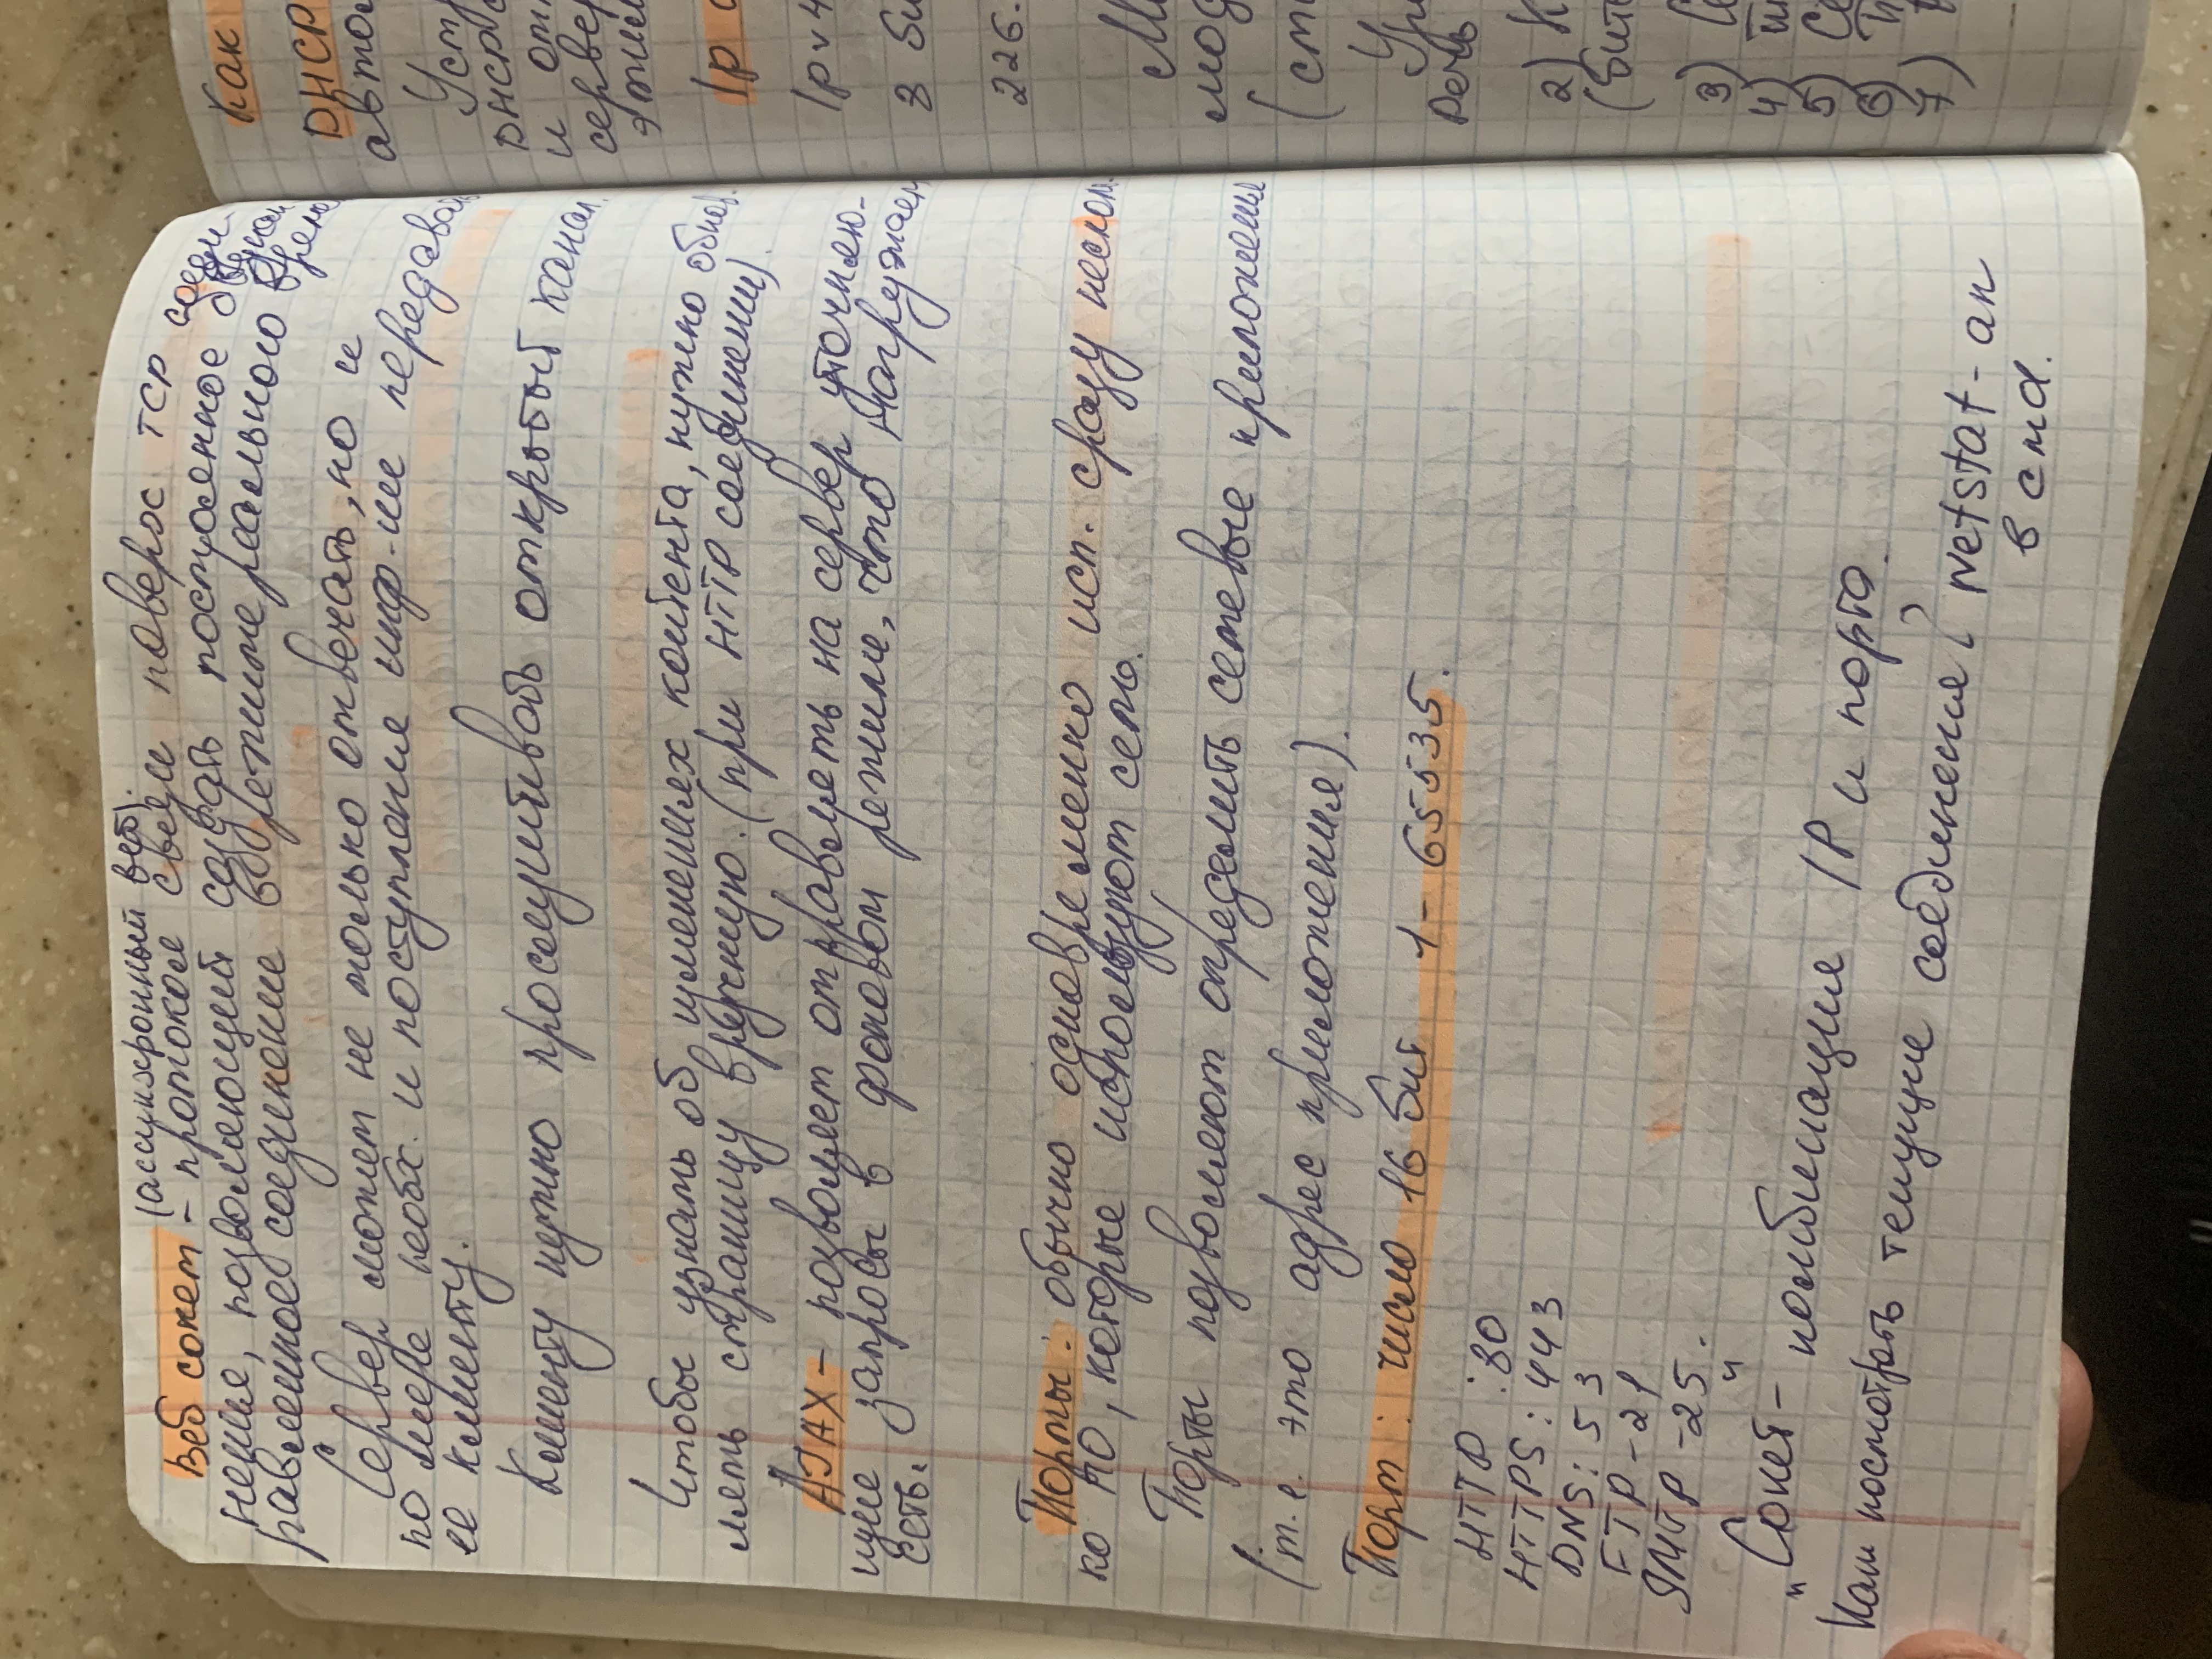 (ассинхронный веб).
Веб сокет - протокол связи поверх TCP соеди-
нения, позволяющий создать постоянное двунап
равленное соединение в режиме реального време
Сервер может не только отвечать, но и
по мере необх. и поступления инф-ии передавать
ее клиенту.
Клиенту нужно прослушивать открытый канал.
Чтобы узнать об изменениях контента, нужно обнов-
лять страницу вручную. (при HTTP соединении).
AJAX - позволяет отправлять на сервер уточняю-
щие запросы в фоновом режиме, что нагружает
сеть.
Порты: обычно одновременно исп. сразу несколь-
ко ПО, которые используют сеть.
Порты позволяют определить сетевые приложения
(т.е. это адрес приложения).
Порт: число 16 бит 1 - 65535.
HTTP :80
HTTPS: 443
DNS: 53
FTP - 21
SMTP - 25.
„Сокет-" комбинация IP и порта.
Как посмотреть текущие соединения? Netstat - an
в cmd.
Как
DHCP
автом
Уст
DHCP с
и от
сервер
этим
Ip
Ipv4
8 би
226.
М
мод
(ст
Ур
Речь
2) К
(бит
3) С
4)
5) Се
6) П
7)